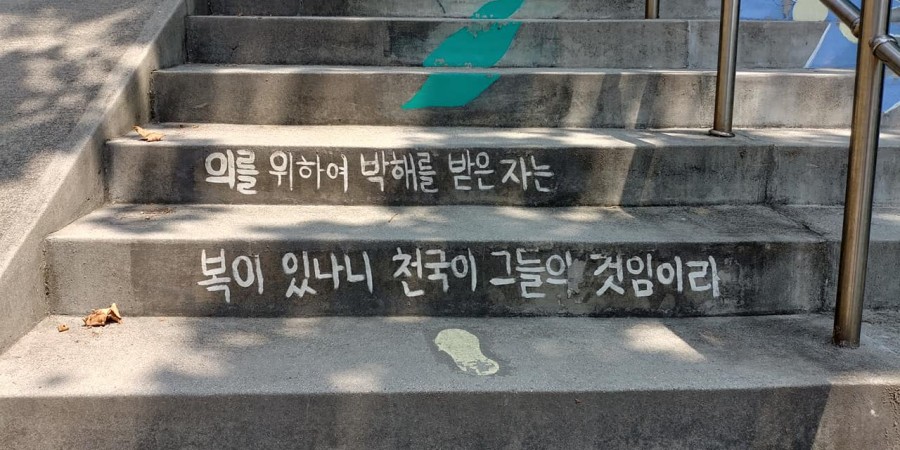 의를 위하여 박해를 받은 자는
복이 있나니 천국이 그들의 것임이라